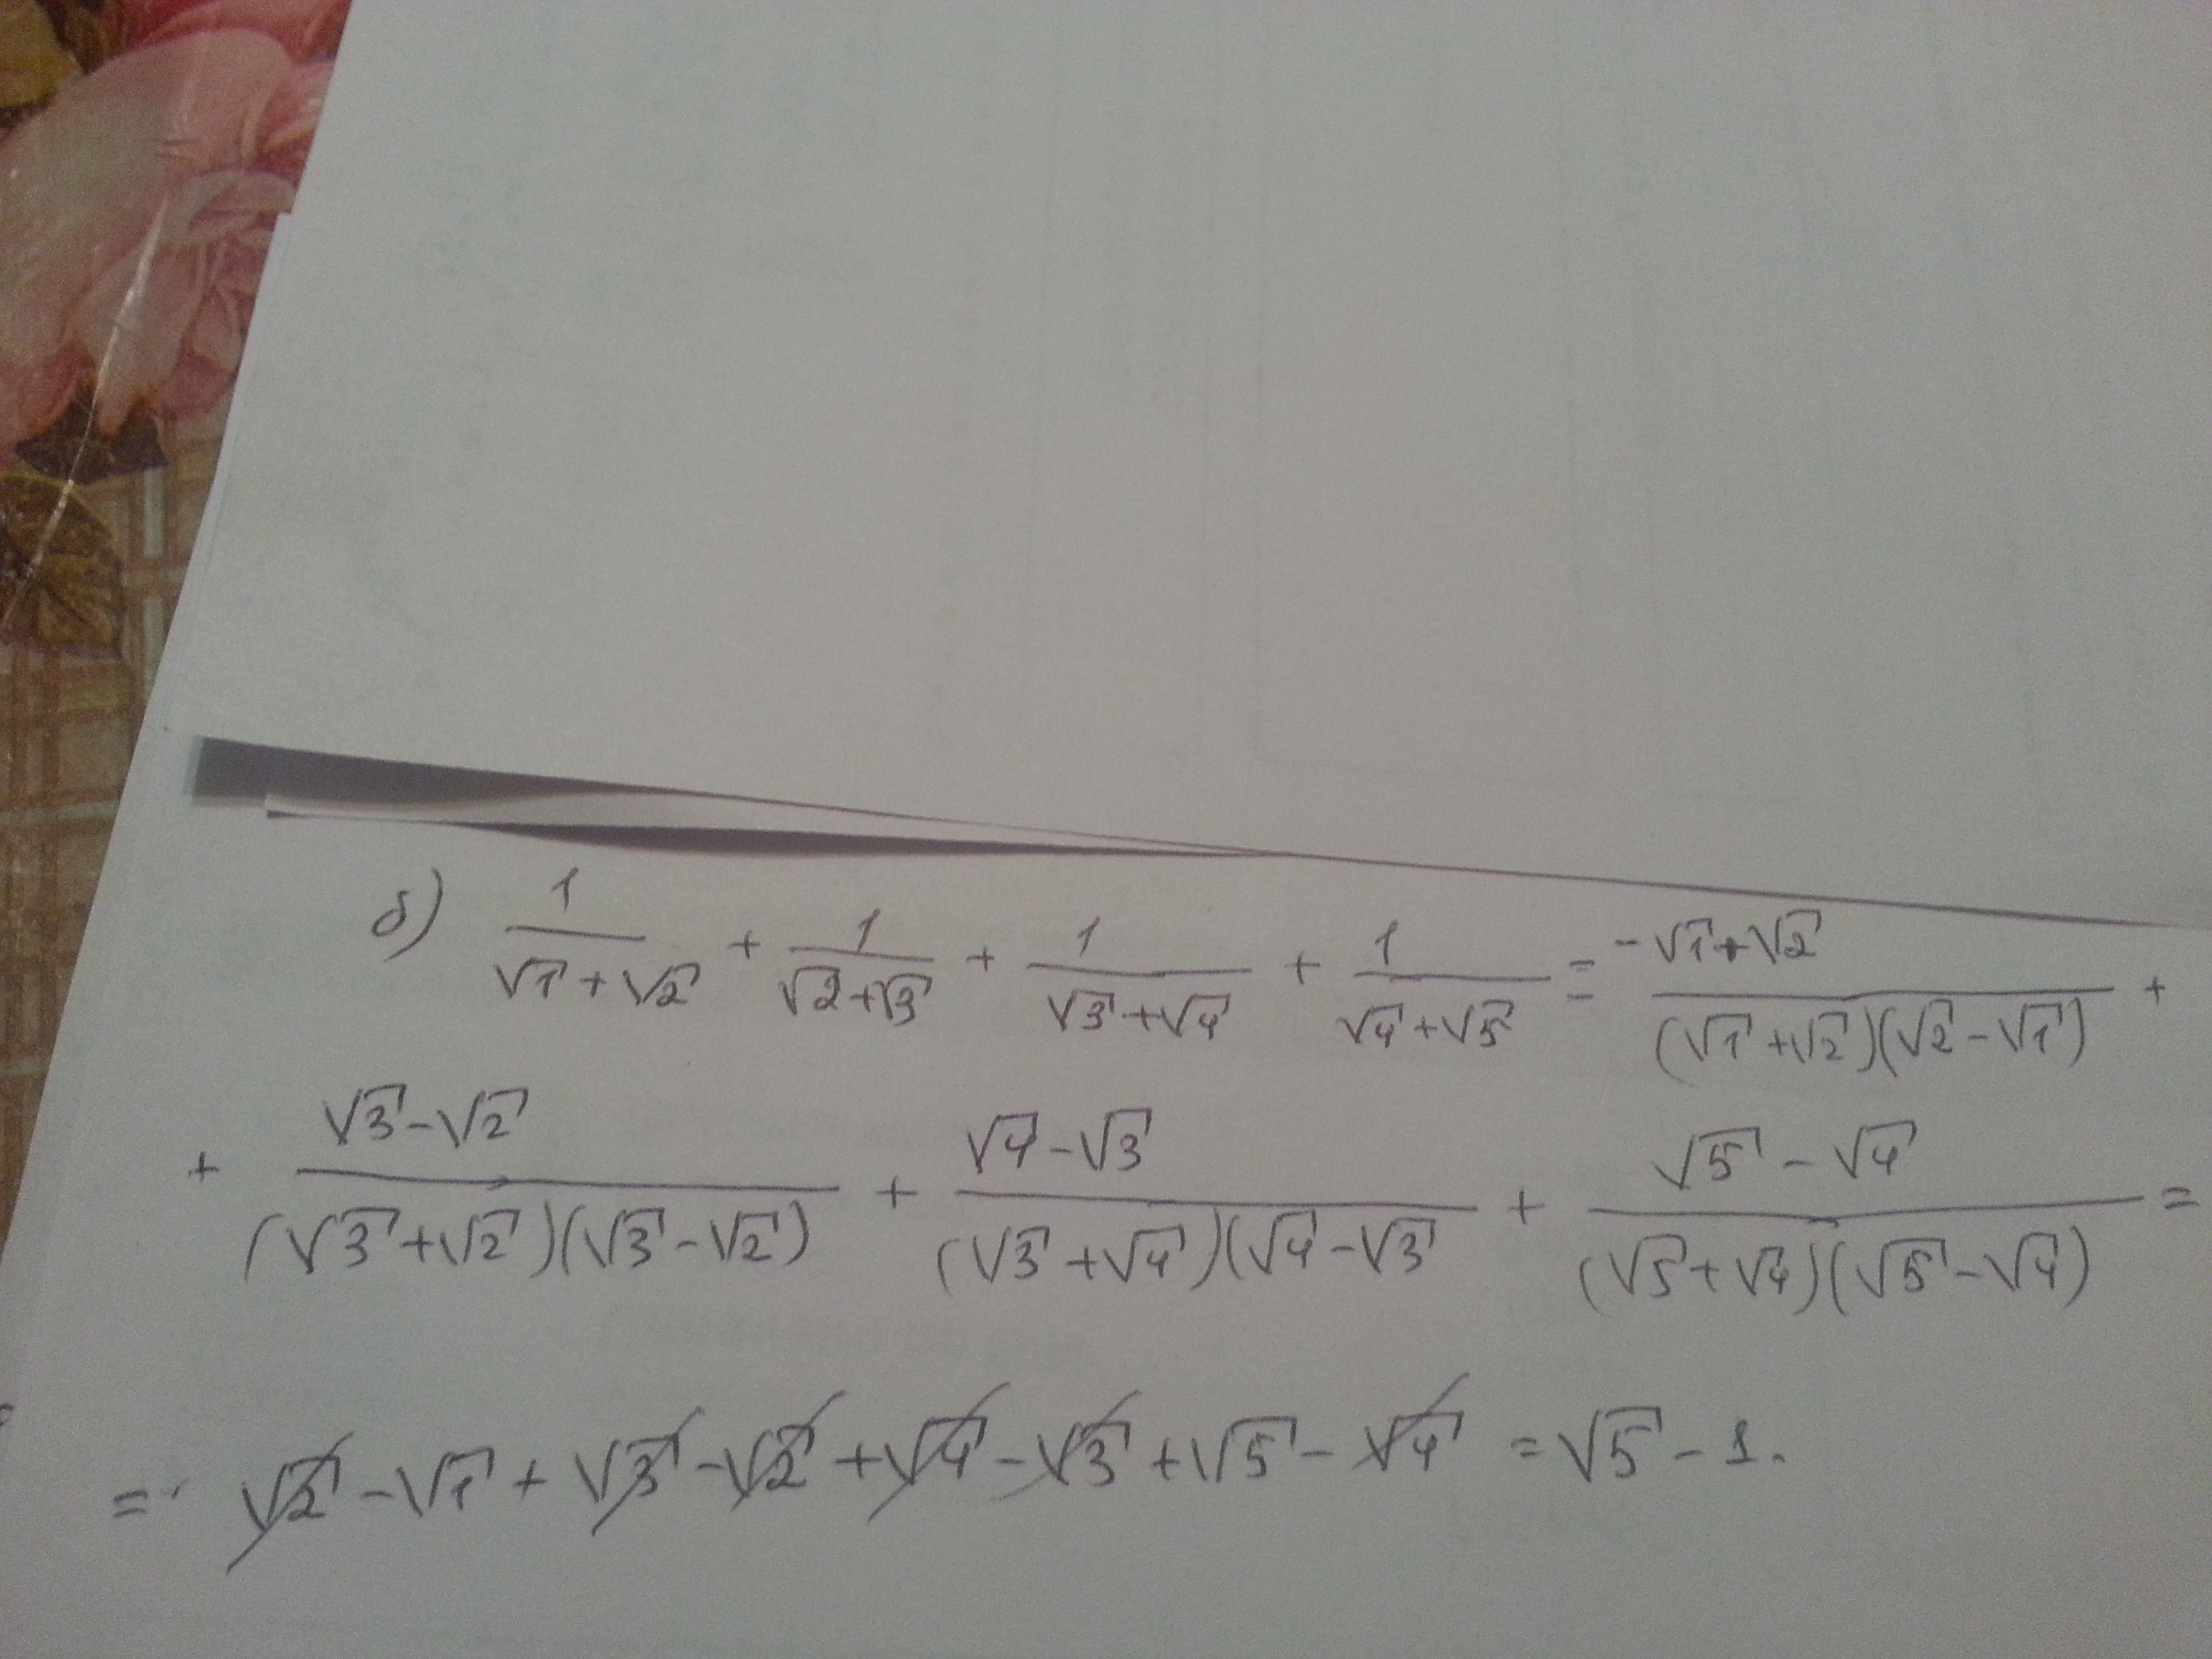 б) 1/(√1+√2) + 1/(√2+√3) + 1/(√3+√4) + 1/(√4+√5) = (-√1+√2)/((√1+√2)(√2-√1)) +
+ (√3-√2)/((√3+√2)(√3-√2)) + (√4-√3)/((√3+√4)(√4-√3) + (√5-√4)/((√5+√4)(√5-√4)) =
= √2-√1+√3-√2+√4-√3+√5-√4 = √5-1.